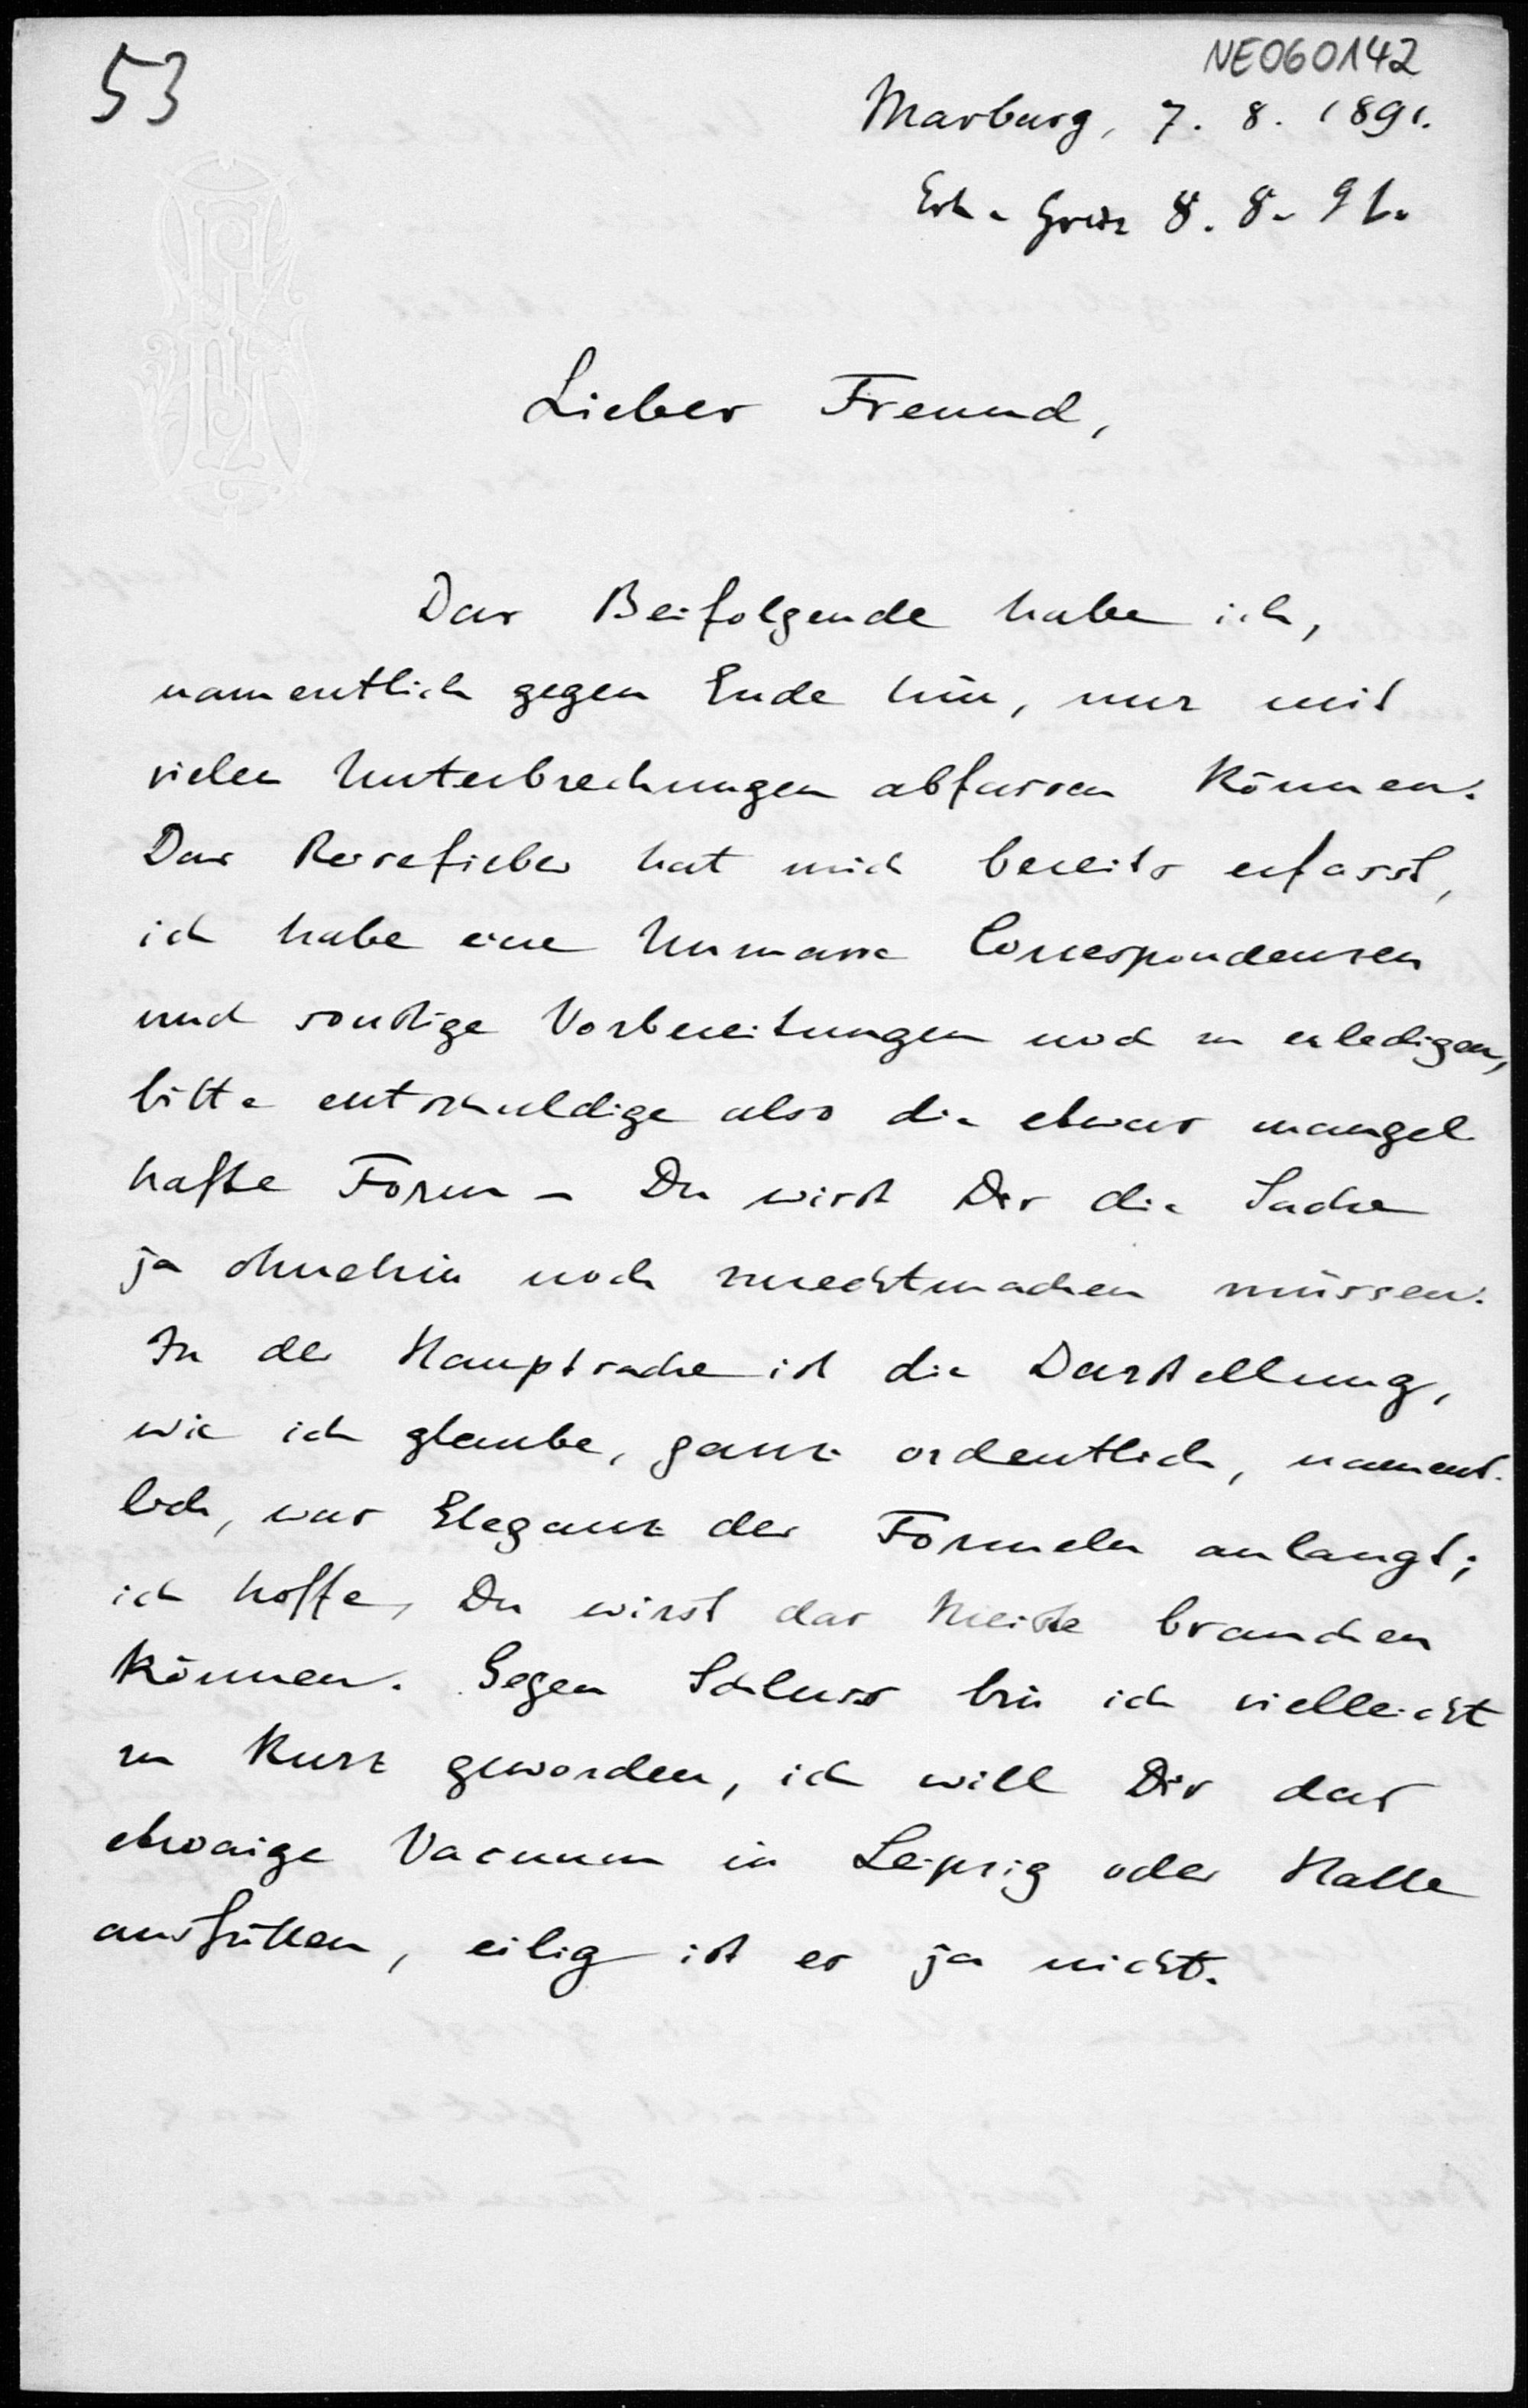 53
NE060142
Marburg, 7. 8. 1891.
Erh. Greiz 8. 8. 91.
Lieber Freund,
Das Beifolgende habe ich,
namentlich gegen Ende hin, nur mit
vielen Unterbrechungen abfassen können.
Das Reisefieber hat mich bereits erfasst,
ich habe eine Unmasse Correspondenzen
und sonstige Vorbereitungen noch zu erledigen,
bitte entschuldige also die etwas mangel
hafte Form – Du wirst Dir die Sache
ja ohnehin noch zurechtmachen müssen.
In der Hauptsache ist die Darstellung,
wie ich glaube, ganz ordentlich, nament-
lich, was Eleganz der Formeln anlangt;
ich hoffe, Du wirst das Meiste brauchen
können. Gegen Schluss bin ich vielleicht
zu kurz geworden, ich will Dir das
etwaige Vacuum in Leipzig oder Halle
ausfüllen, eilig ist es ja nicht.